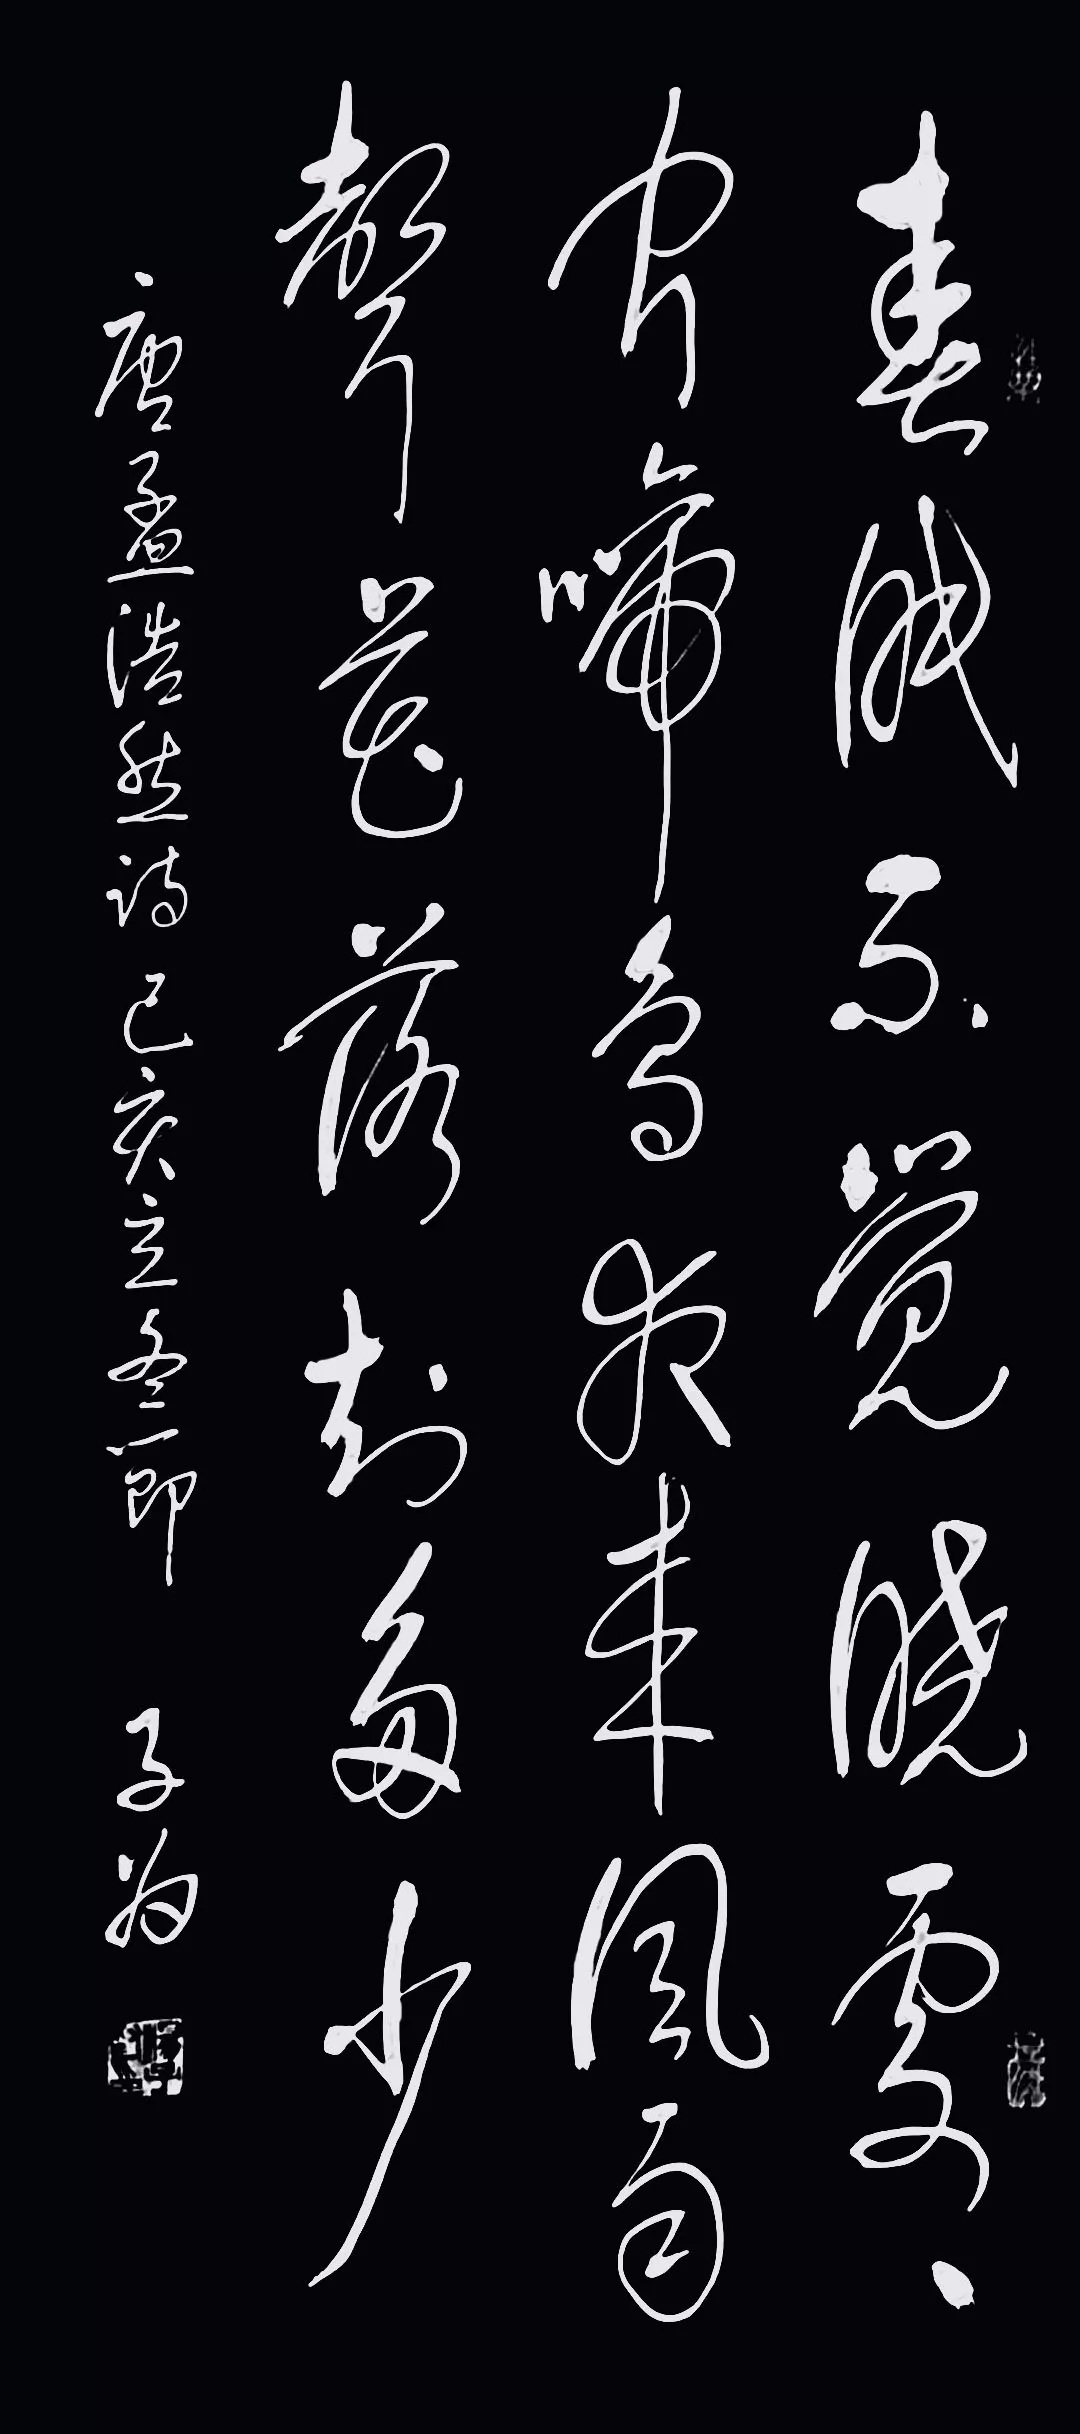 春眠不觉晓处、
闻啼鸟夜来风雨
声花落知多少
唐孟浩然诗 己亥立冬节 子为